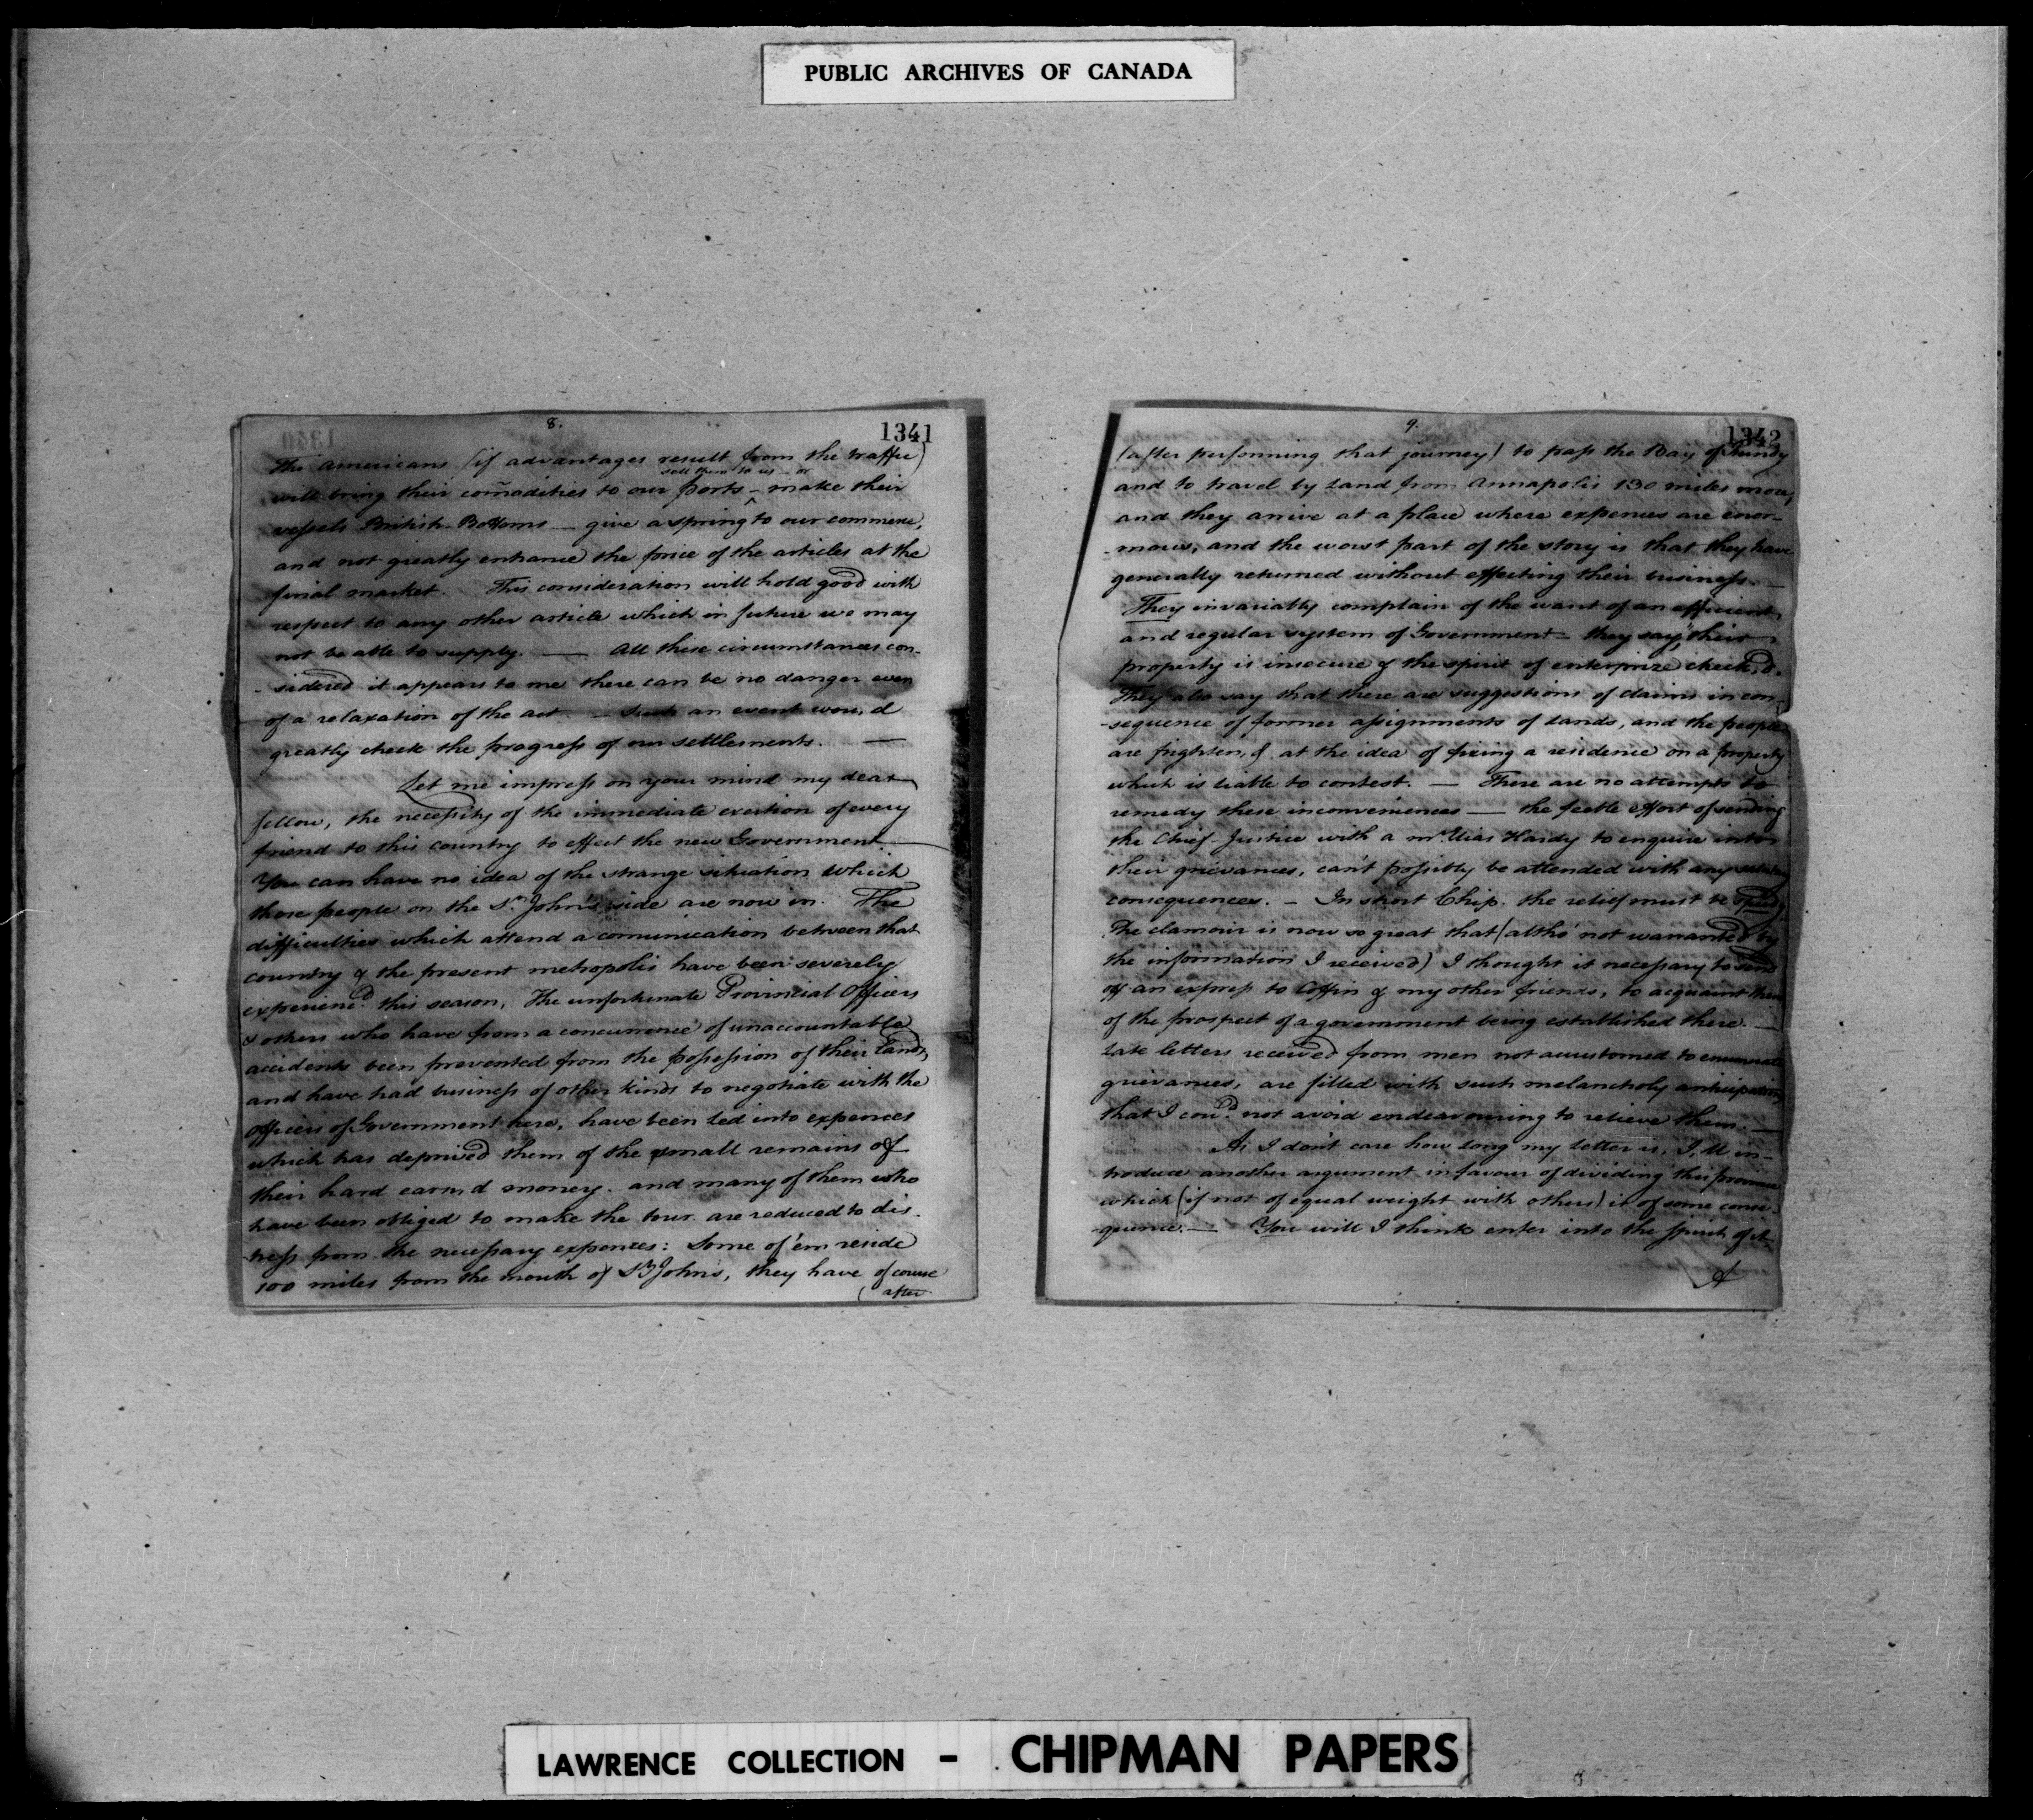 PUBLIC ARCHIVES OF CANADA
8.
1341
The Americans (if advantages result from the traffic)
sell them to us - or
will bring their com̄odities to our ports - make their
vessels British-Bottoms — give a spring to our commerce,
and not greatly enhance the price of the articles at the
final market. This consideration will hold good with
respect to any other article which in future we may
not be able to supply. — All these circumstances con-
-sidered it appears to me there can be no danger even
of a relaxation of the act. — Such an event wou,d
greatly check the progress of our settlements. —
Let me impress on your mind my dear
fellow, the necessity of the immediate exertion of every
friend to this country to effect the new Government.
You can have no idea of the strange situation which
those people on the St. John's side are now in. The
difficulties which attend a comunication between that
country & the present metropolis have been severely
experienc'd this season. The unfortunate Provincial Officers
& others who have from a concurrence of unaccountable
accidents been prevented from the possession of their lands,
and have had business of other kinds to negotiate with the
officers of Government here, have been led into expences
which has deprived them of the small remains of
their hard earn'd money. and many of them who
have been obliged to make the tour are reduced to dis-
-tress from the necessary expences: Some of 'em reside
100 miles from the mouth of St Johns, they have of course
(after
9.
1342
(after performing that journey) to pass the Bay of Fundy
and to travel by land from Annapolis 130 miles more,
and they arive at a place where expences are enor-
-mous, and the worst part of the story is that they have
generally returned without effecting their business. —
They invariably complain of the want of an efficient
and regular system of Government - they say, their
property is insecure & the spirit of enterprize check,d.
They also say that there are suggestions of claims in con-
-sequence of former assignments of lands, and the people
are frighten,d at the idea of fixing a residence on a property
which is liable to contest. — There are no attempts to
remedy these inconveniences — the feeble effort of sending
the Chief-Justice with a Mr. Elias Hardy to enquire into
their grievances, can't possibly be attended with any salutary
consequences. - In short Chip. the relief must be speedy.
The clamour is now so great that (altho' not warranted by
the information I received) I thought it necessary to send
off an express to Coffin & my other friends, to acquaint them
of the prospect of a government being established there. —
Late letters received from men not accustomed to enumerate
grievances, are filled with such melancholy anticipation
that I cou'd not avoid endeavouring to relieve them. —
As I don't care how long my letter is, I,ll in-
troduce another argument in favour of dividing this province
which (if not of equal weight with others) is of some conse-
-quence. — You will I think enter into the spirit of it
A
LAWRENCE COLLECTION - CHIPMAN PAPERS